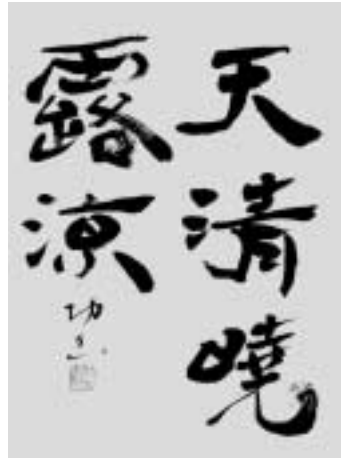 天清曉
露涼